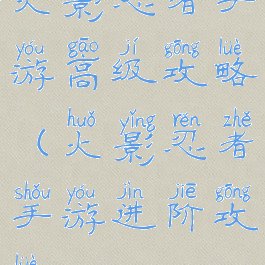 火影忍者手
yóu gāo jí gōng lüè
游高级攻略
huǒ yǐng rěn zhě
（火影忍者
shǒu yóu jìn jiē gōng
手游进阶攻
lüè